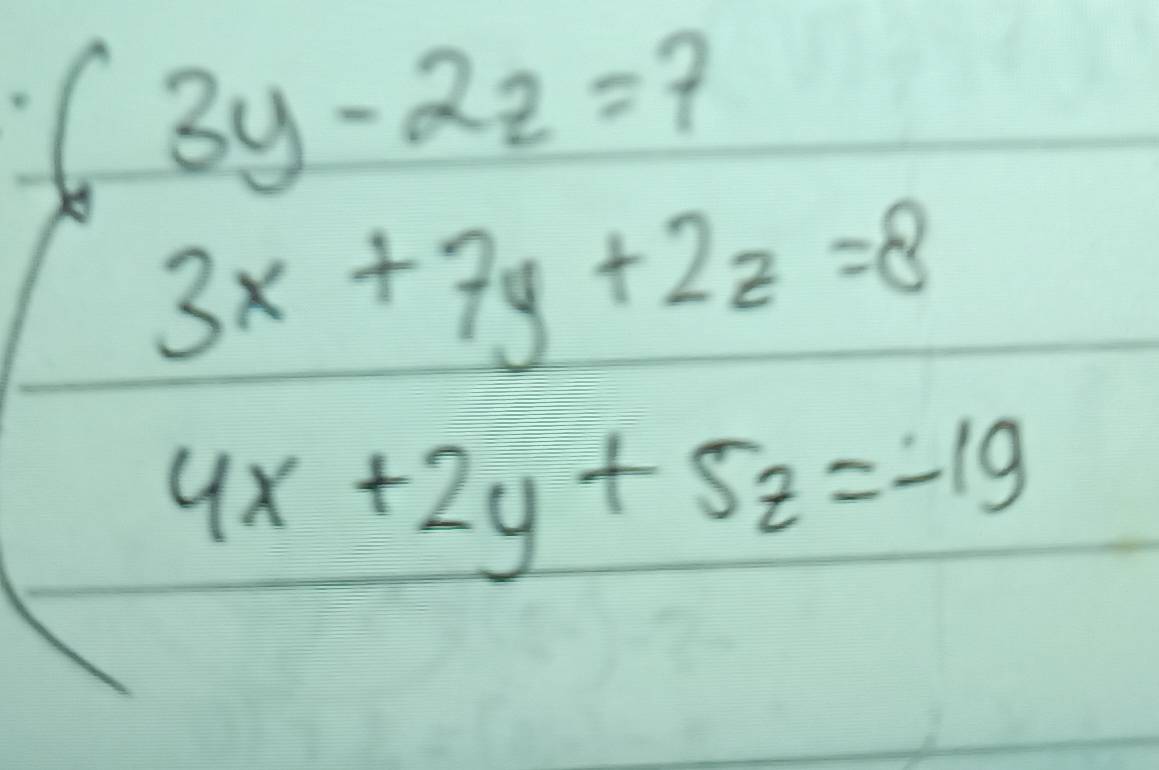 3y - 2z = 7
3x + 7y + 2z = 8
4x + 2y + 5z = -19